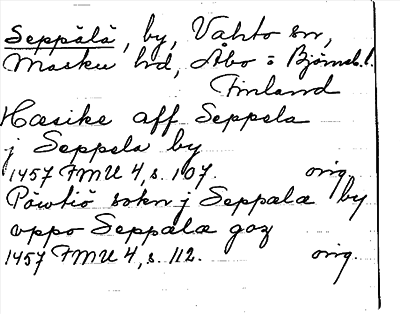 Seppälä, by, Vahto sn,
Masku hd, Åbo = Björneb. l.
Finland
Hæsike aff Seppela
j Seppela by
1457 FMU 4, s. 107. orig.
Pöwtiö sokn j Seppalæ by
oppo Seppalæ goz
1457 FMU 4, s. 112. orig.